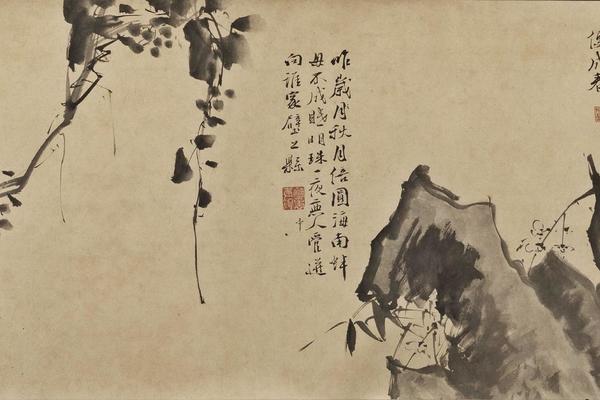 便成春
昨歲月秋月倍圓海南蚌
母不成眠明珠一夜無人管迸
向誰家壁上縣